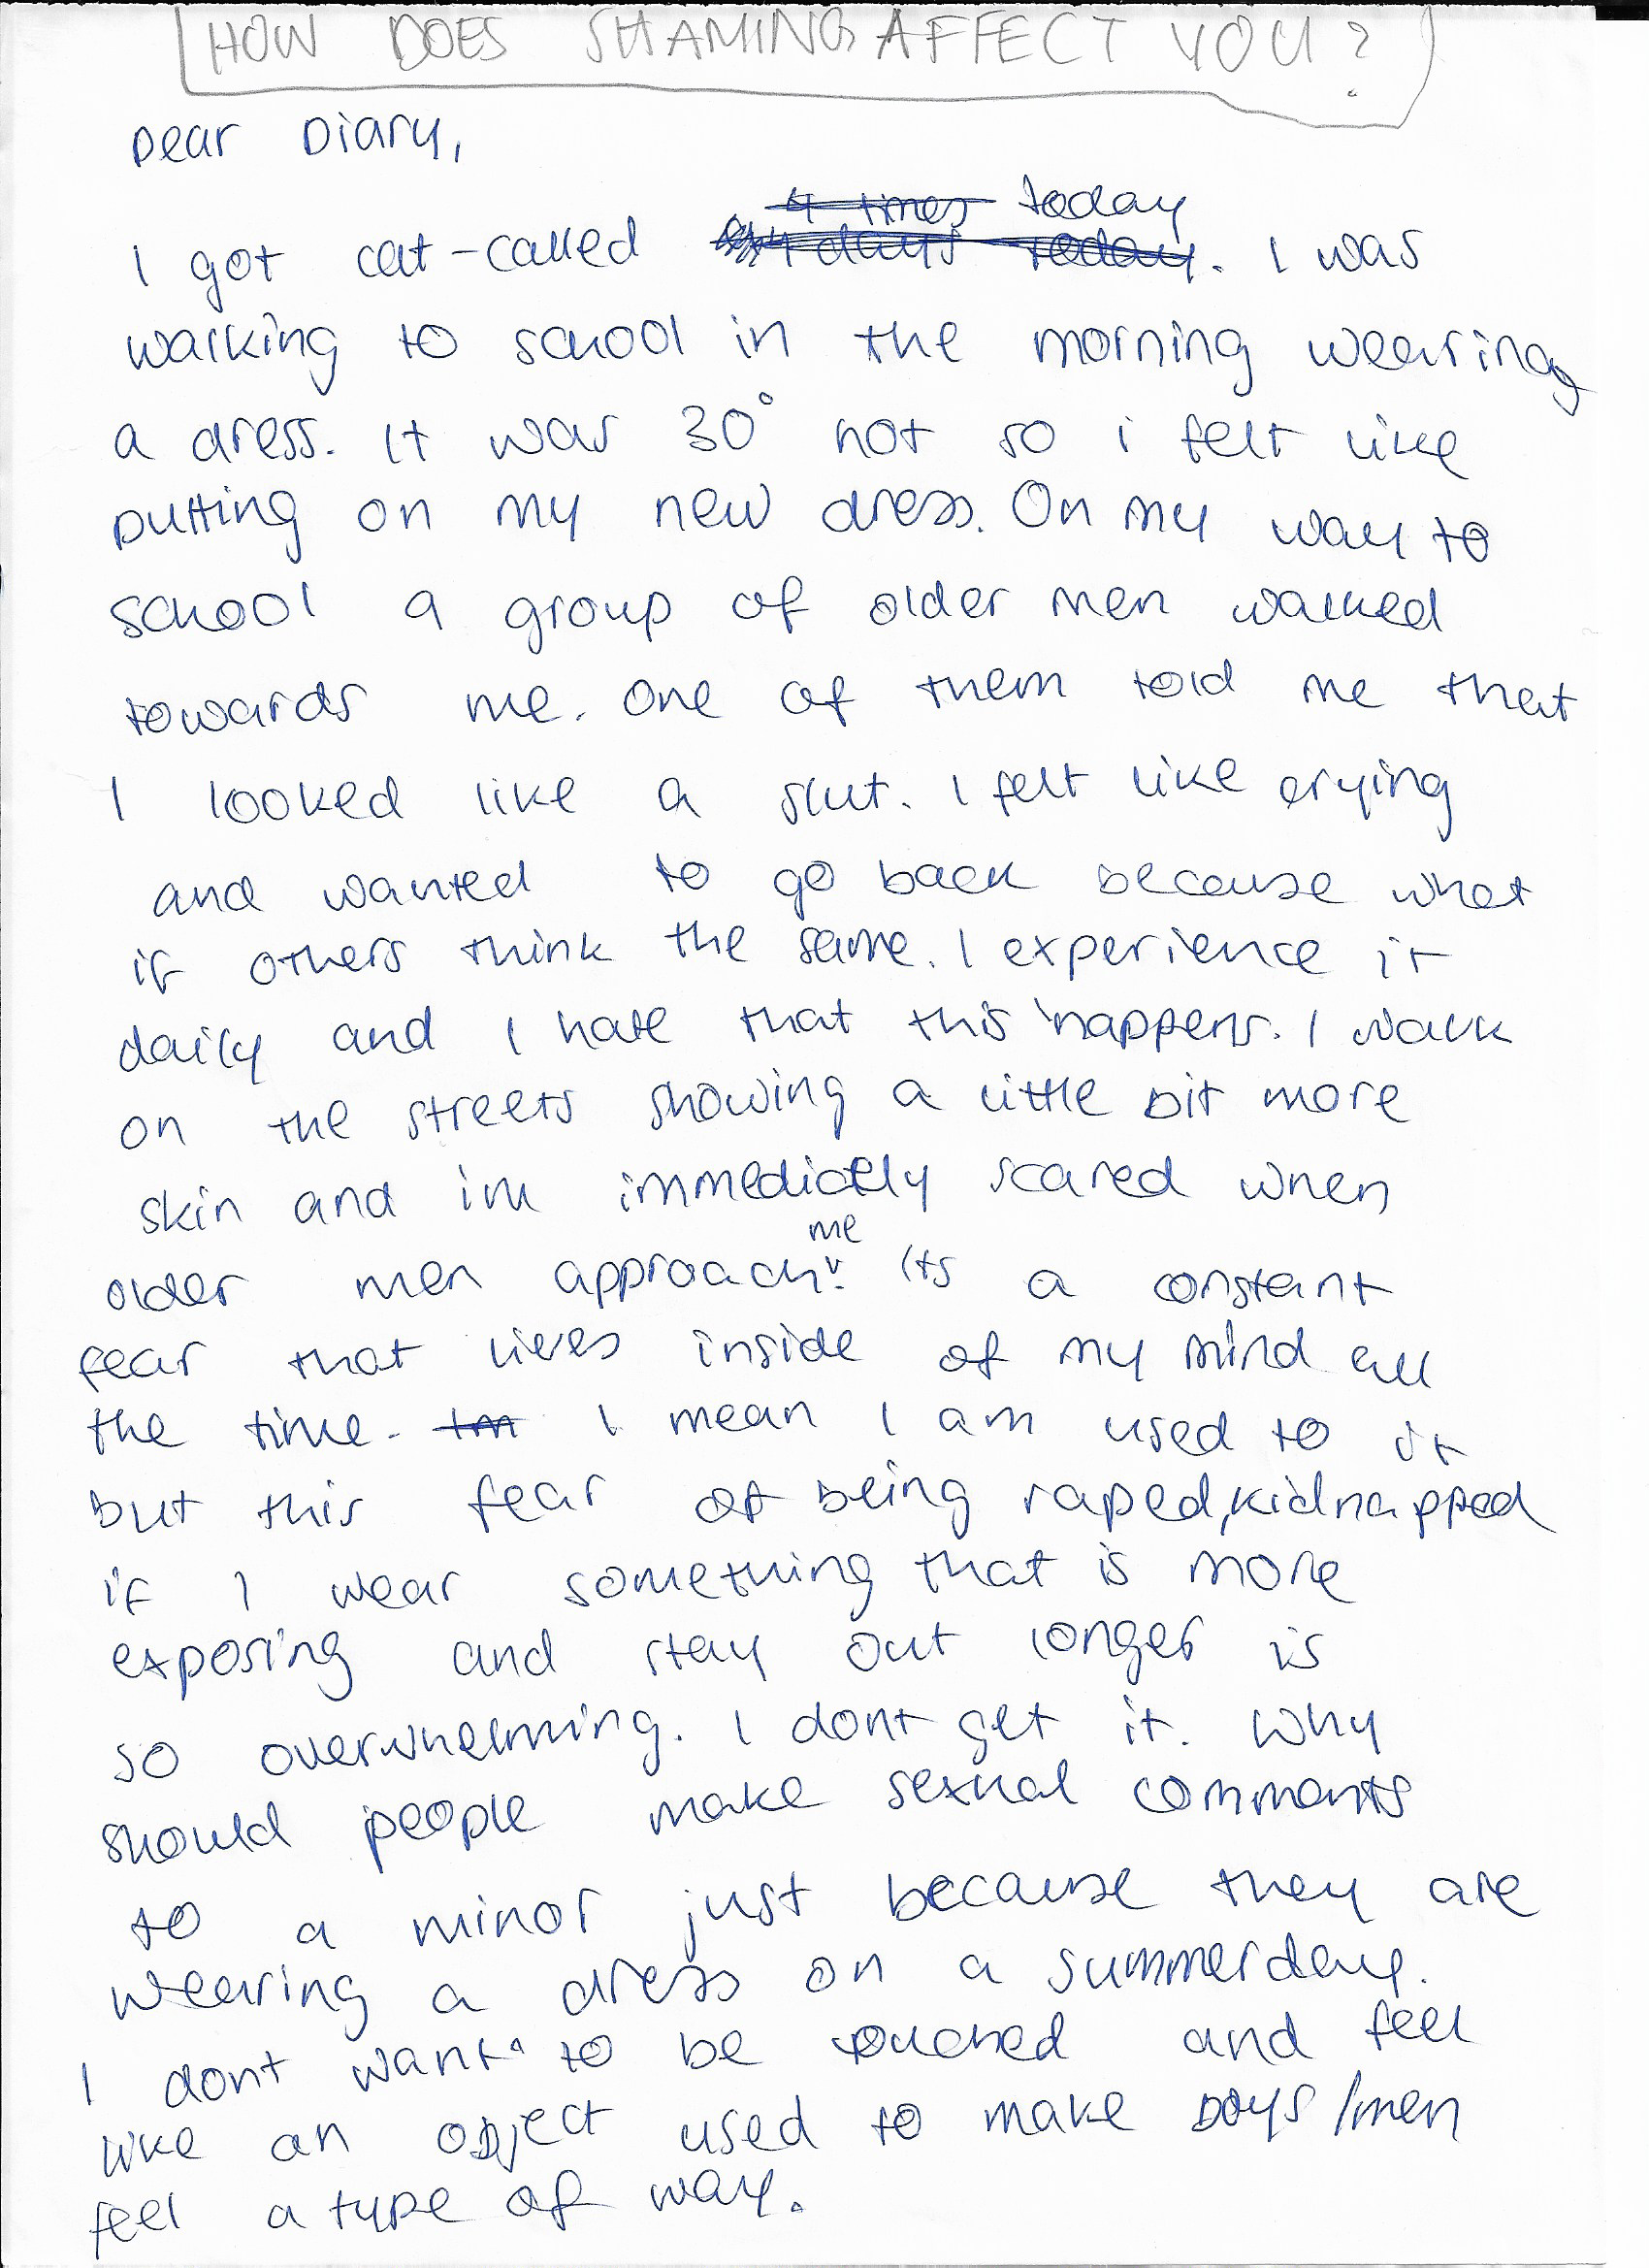 HOW DOES SHAMING AFFECT YOU?
Dear Diary,
4 times today
I got cat-called days today. I was
walking to school in the morning wearing
a dress. It was 30° hot so i felt like
putting on my new dress. On my way to
school a group of older men walked
towards me. One of them told me that
I looked like a slut. I felt like crying
and wanted to go back because what
if others think the same. I experience it
daily and I hate that this happens. I walk
on the streets showing a little bit more
skin and im immediatly scared when
me
older men approach. Its a constant
fear that lives inside of my mind all
the time. Im I mean I am used to it
but this fear of being raped, kidnapped
if I wear something that is more
exposing and stay out longer is
so overwhelming. I dont get it. Why
should people make sexual comments
to a minor just because they are
wearing a dress on a summerday.
I dont want to be touched and feel
like an object used to make boys/men
feel a type of way.